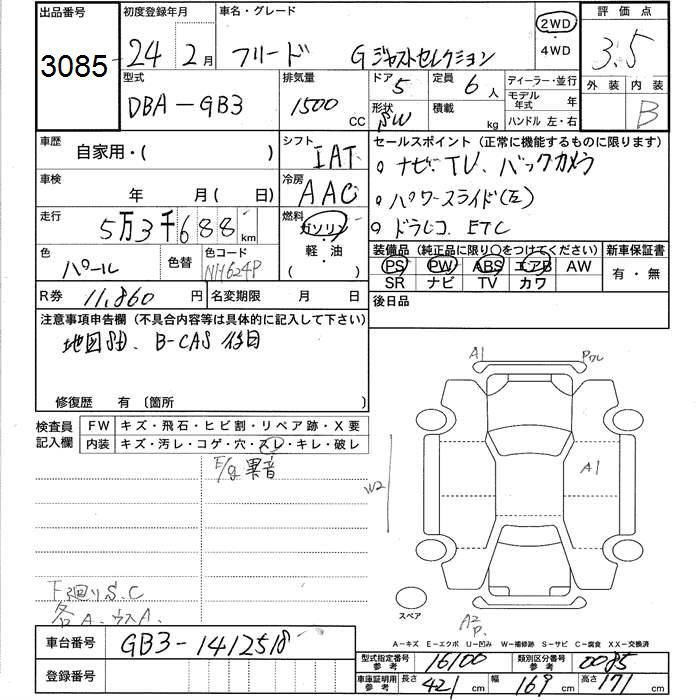 出品番号 初度登録年月 車名・グレード 2WD ・ 4WD 評価点
3085 24年 2月 フリード G ジャストセレクション 3.5
型式 排気量 ドア 5 定員 6人 ディーラー・並行 外装 内装
DBA-GB3 1500 CC 形状 SW 積載 kg モデル年式 年 B
ハンドル 左・右
車歴 自家用・( ) シフト IAT セールスポイント(正常に機能するものに限ります)
。ナビ、TV、バックカメラ
車検 年 月(日) 冷房 AAC 。パワースライド(左)
走行 5万3千688km 燃料 ガソリン・軽油 ( ) 。ドラレコ、ETC
色 パール 色替 色コード NH624P 装備品(純正品に限り○をつけてください) 新車保証書
PS PW ABS エアB AW 有・無
SR ナビ TV カワ
R券 11,860円 名変期限 月 日 後日品
注意事項申告欄(不具合内容等は具体的に記入して下さい)
地図SD、B-CAS 後日
修復歴 有 〔箇所 〕
検査員記入欄 FW キズ・飛石・ヒビ割・リペア跡・X要
内装 キズ・汚レ・コゲ・穴・スレ・キレ・破レ
E/g異音
A1 Pワレ
A1
W2
F廻りS.C
各A.ウスA.
スペア
A2
P.
A-キズ E-エクボ U-凹み W-補修跡 S-サビ C-腐食 XX-交換済
車台番号 GB3-1412518 型式指定番号 参考 16100 類別区分番号 参考 0085
登録番号 車庫証明用 参考 長さ 421cm 幅 169cm 高さ 171cm